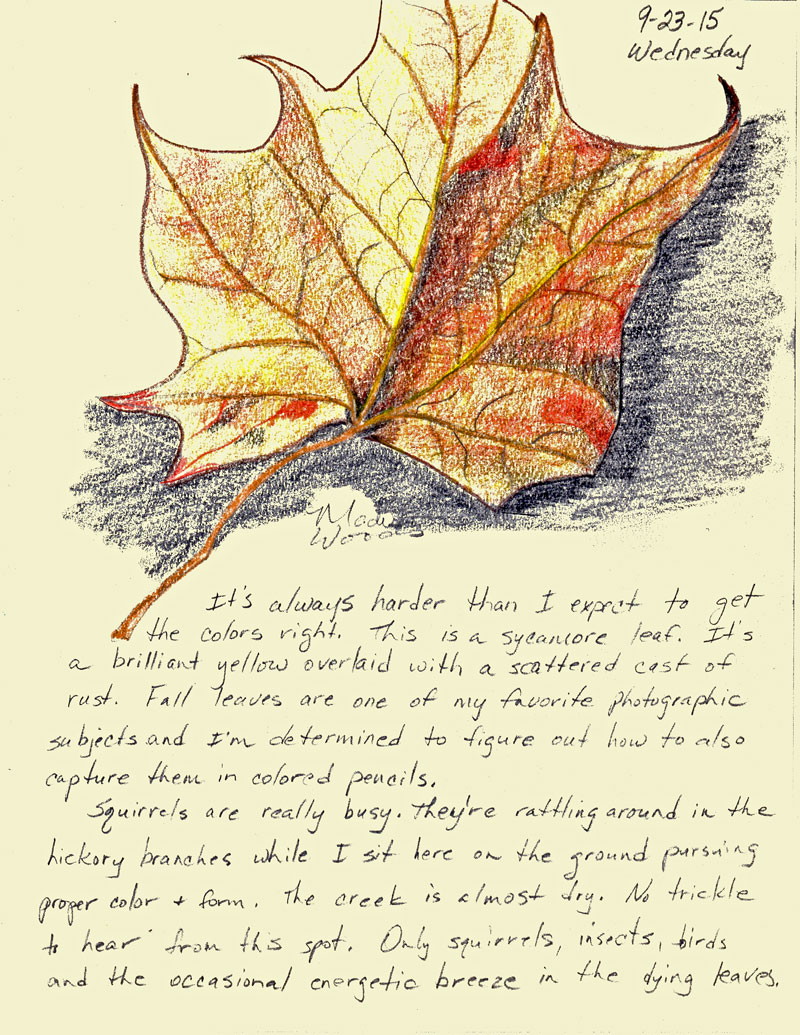 9-23-15
Wednesday
Woods
It's always harder than I expect to get
the colors right. This is a sycamore leaf. It's
a brilliant yellow overlaid with a scattered cast of
rust. Fall leaves are one of my favorite photographic
subjects and I'm determined to figure out how to also
capture them in colored pencils.
Squirrels are really busy. They're rattling around in the
hickory branches while I sit here on the ground pursuing
proper color + form. The creek is almost dry. No trickle
to hear from this spot. Only squirrels, insects, birds
and the occasional energetic breeze in the dying leaves.